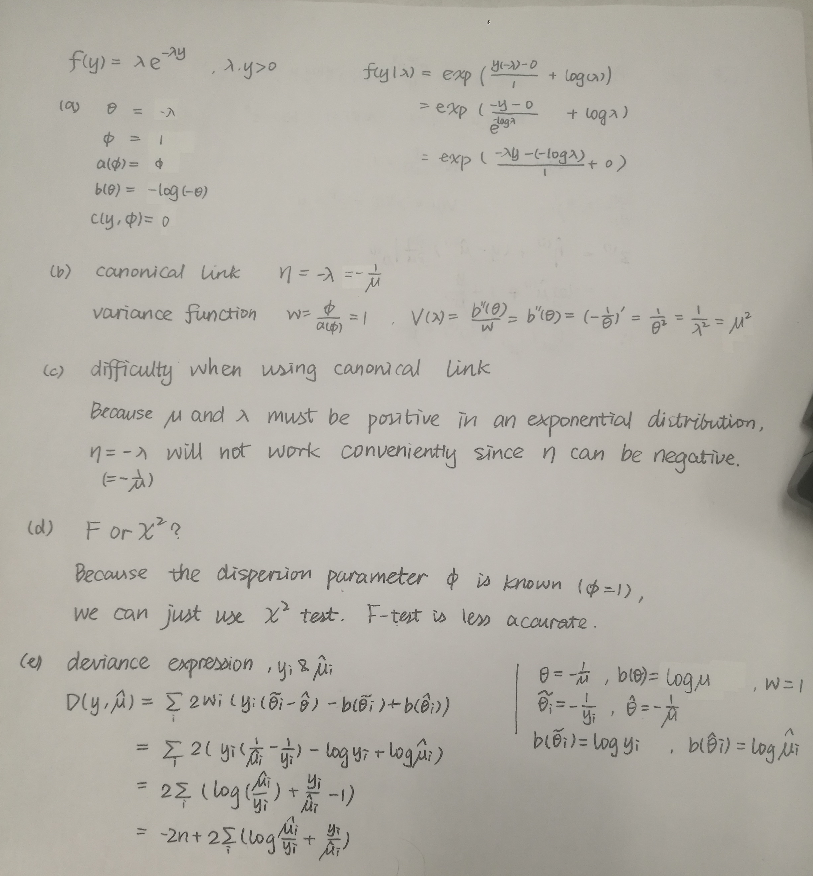 f(y) = λe^{-λy} , λ.y>0
f(y|λ) = exp ( \frac{y(-λ)-0}{1} + log(λ))
= exp ( \frac{-y-0}{e^{-logλ}} + logλ)
= exp ( \frac{-λy-(-logλ)}{1} + 0 )
(a) θ = -λ
ϕ = 1
a(ϕ) = ϕ
b(θ) = -log(-θ)
c(y, ϕ) = 0
(b) canonical link η = -λ = -\frac{1}{μ}
variance function w = \frac{ϕ}{a(ϕ)} = 1 . V(λ) = \frac{b''(θ)}{w} = b''(θ) = (-\frac{1}{θ})' = \frac{1}{θ^2} = \frac{1}{λ^2} = μ^2
(c) difficulty when using canonical link
Because μ and λ must be positive in an exponential distribution,
η = -λ will not work conveniently since η can be negative.
(= -\frac{1}{μ})
(d) F or χ^2 ?
Because the disperzion parameter ϕ is known (ϕ=1),
we can just use χ^2 test. F-test is less accurate.
(e) deviance expression , yi & \hat{μ}i
D(y, \hat{μ}) = Σ_i 2wi (yi(\tilde{θ}i - \hat{θ}) - b(\tilde{θ}i) + b(\hat{θ}i))
= Σ_i 2( yi(\frac{1}{\hat{μ}i} - \frac{1}{yi}) - log yi + log \hat{μ}i)
= 2Σ_i (log(\frac{\hat{μ}i}{yi}) + \frac{yi}{\hat{μ}i} - 1)
= -2n + 2Σ_i (log \frac{\hat{μ}i}{yi} + \frac{yi}{\hat{μ}i})
θ = -\frac{1}{μ} , b(θ) = log μ , w = 1
\tilde{θ}i = -\frac{1}{yi} , \hat{θ} = -\frac{1}{\hat{μ}}
b(\tilde{θ}i) = log yi , b(\hat{θ}i) = log \hat{μ}i